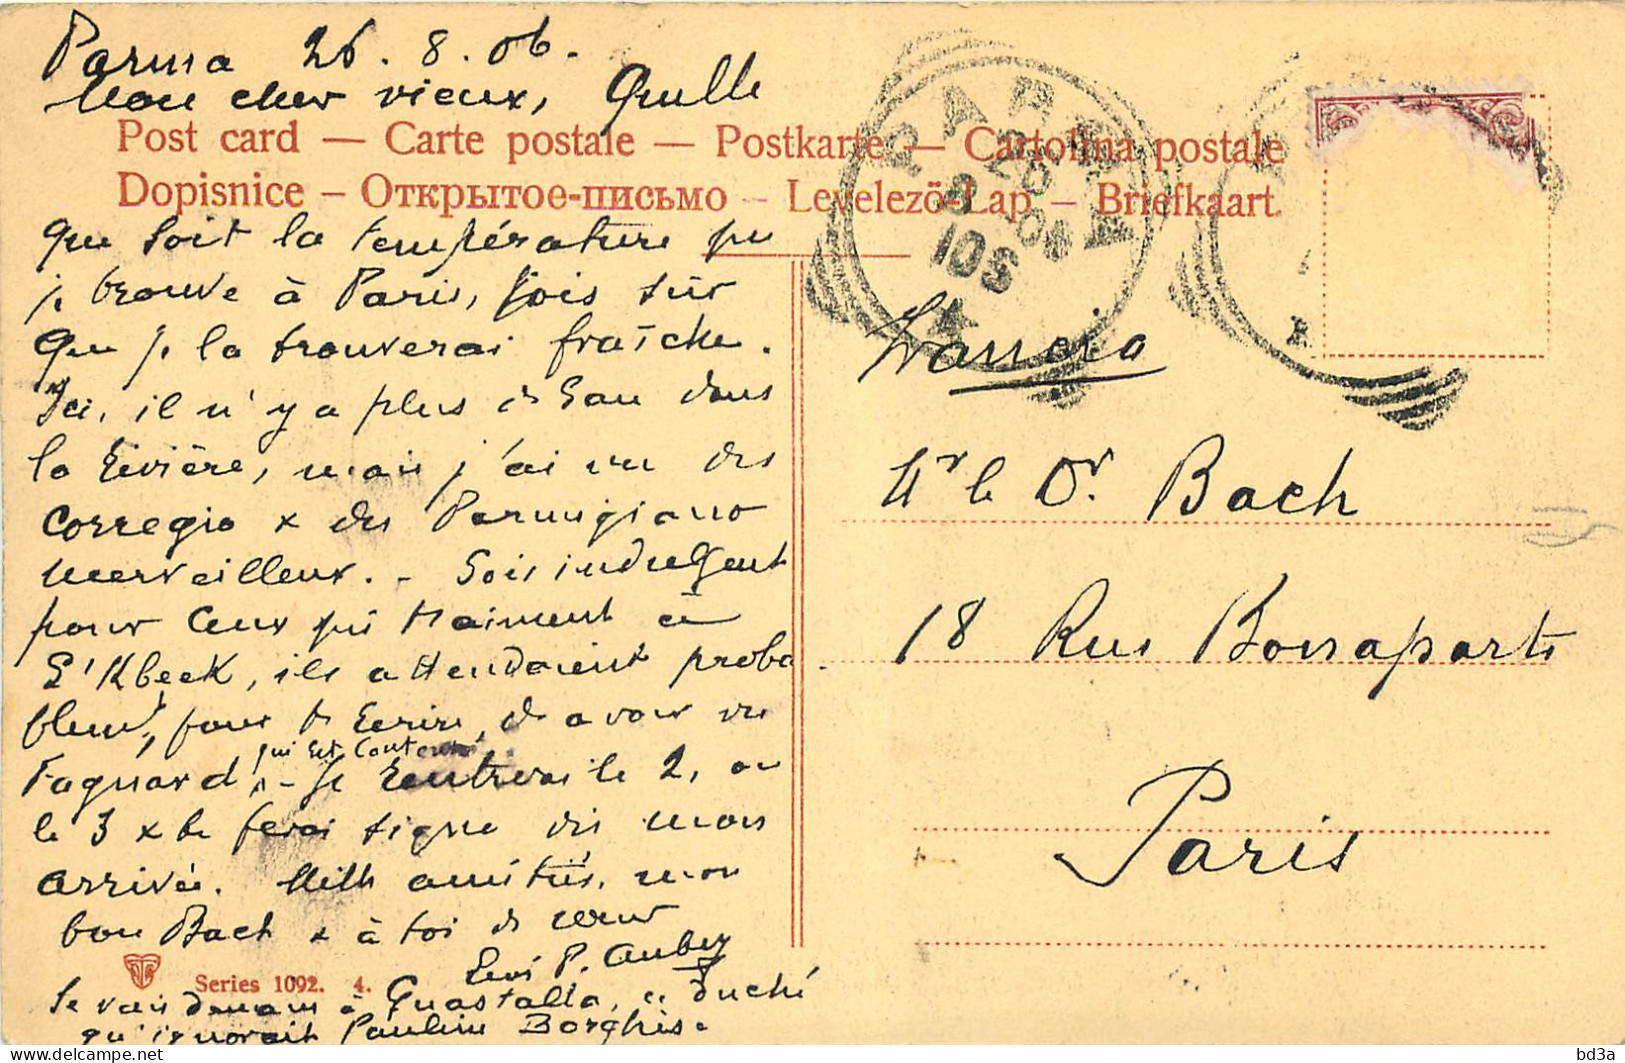 Parma 26.8.06.
Mon cher vieux, Quelle
Post card — Carte postale — Postkarte — Cartolina postale
Dopisnice — Открытое-письмо — Levelezö-Lap — Briefkaart.
que soit la température que
je trouve à Paris, sois sûr
que je la trouverai fraîche.
Ici, il n'y a plus d'Eau dans
la Rivière, mais j'ai vu des
Corregio x des Parmigiano
merveilleux. - Sois indulgent
pour ceux qui t'aiment à
, ils attendaient proba
blemt, pour t'Ecrire, d'avoir vu
qui Est
Fagnard, - Je rentrerai le 2, ou
le 3 x te ferai signe dès mon
arrivée. Mille amitiés, mon
bon Bach x à toi de cœur
P. Aubry
Series 1092. 4.
Je vais demain à Guastalla, ce duché
qu'ignorait Pauline Borghèse.
PARMA
26
8
06
10S
Francia
Mr le Dr. Bach
18 Rue Bonaparte
Paris
bd3a